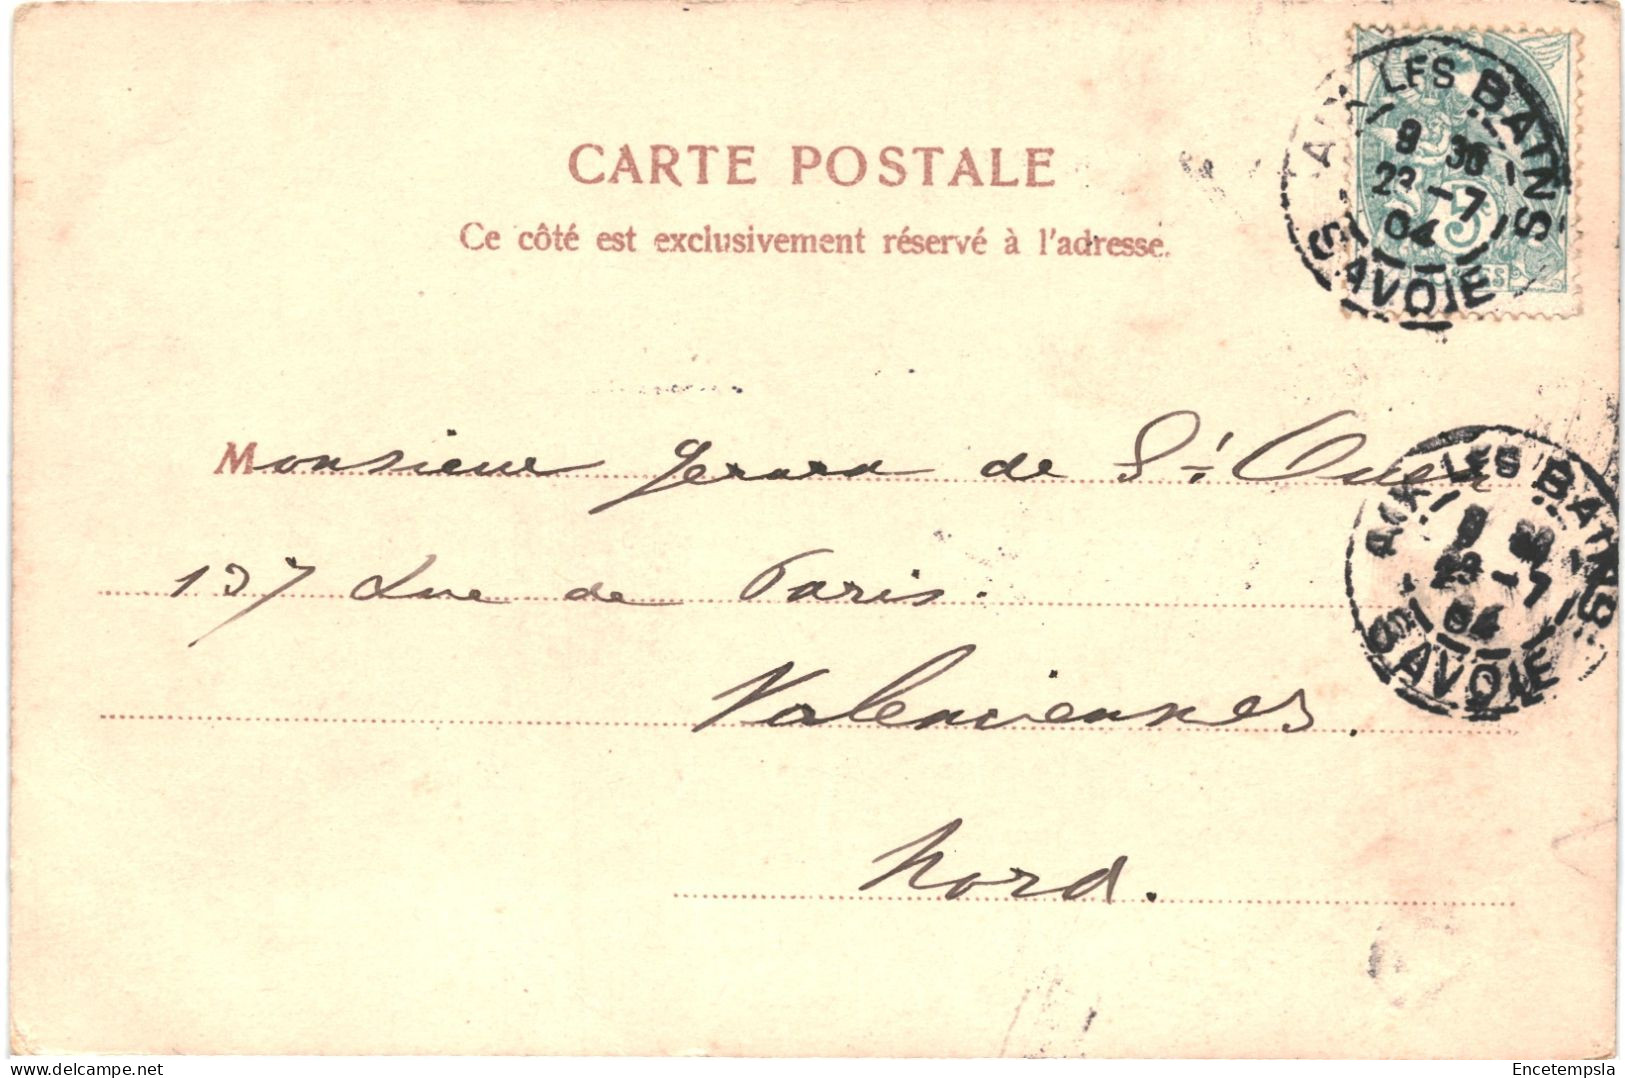 CARTE POSTALE
Ce côté est exclusivement réservé à l'adresse.
AIX LES BAINS
9 30
23 - 7
04
SAVOIE
5c
POSTES
Monsieur Gerard de St Ouen
AIX LES BAINS
9 30
23 - 7
04
SAVOIE
137 Rue de Paris.
Valenciennes.
Nord.
delcampe.net
Encetempsla